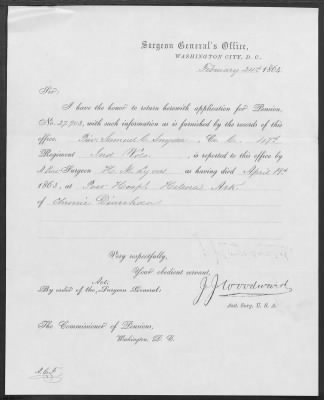 Surgeon General's Office,
WASHINGTON CITY, D. C.
February 24th 1864
Sir:
I have the honor to return herewith application for Pension,
No. 27,903, with such information as is furnished by the records of this
office. Priv. Samuel C. Snyder, Co. C. 11th
Regiment Ind Vols. is reported to this office by
Surgeon as having died April 19th
1863, at Post Hospl Helena Ark.
of Chronic Diarrhoea
Very respectfully,
Your obedient servant,
By order of the Act. Surgeon General:
J J Woodward
Asst. Surg. U. S. A.
The Commissioner of Pensions,
Washington, D. C.